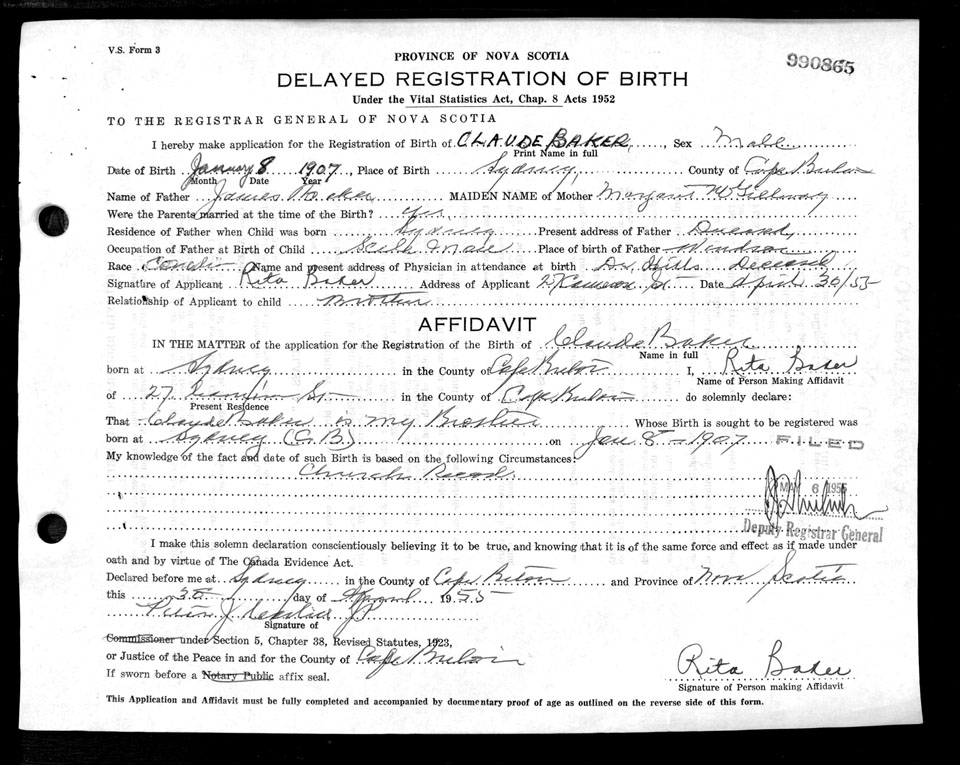 V.S. Form 3
990865
PROVINCE OF NOVA SCOTIA
DELAYED REGISTRATION OF BIRTH
Under the Vital Statistics Act, Chap. 8 Acts 1952
TO THE REGISTRAR GENERAL OF NOVA SCOTIA
I hereby make application for the Registration of Birth of CLAUDE BAKER, Sex Male
Print Name in full
Date of Birth January 8 1907, Place of Birth Sydney, County of Cape Breton
Month Date Year
Name of Father James Baker MAIDEN NAME of Mother Margaret
Were the Parents married at the time of the Birth? Yes
Residence of Father when Child was born Sydney Present address of Father Deceased
Occupation of Father at Birth of Child Place of birth of Father Windsor
Race Name and present address of Physician in attendance at birth Dr. Deceased
Signature of Applicant Rita Baker Address of Applicant 27 St. Date April 30/55
Relationship of Applicant to child
AFFIDAVIT
IN THE MATTER of the application for the Registration of the Birth of Claude Baker
Name in full
born at Sydney in the County of Cape Breton I, Rita Baker
Name of Person Making Affidavit
of 27 St. in the County of Cape Breton do solemnly declare:
Present Residence
That Claude Baker is my Brother Whose Birth is sought to be registered was
born at Sydney (C.B.) on Jan 8 - 1907
FILED
My knowledge of the fact and date of such Birth is based on the following Circumstances:
Church Record
MAY 6 1955
Deputy Registrar General
I make this solemn declaration conscientiously believing it to be true, and knowing that it is of the same force and effect as if made under
oath and by virtue of The Canada Evidence Act.
Declared before me at Sydney in the County of Cape Breton and Province of Nova Scotia
this 30 day of April 1955
Signature of
Commissioner under Section 5, Chapter 38, Revised Statutes, 1923,
or Justice of the Peace in and for the County of Cape Breton
If sworn before a Notary Public affix seal.
Rita Baker
Signature of Person making Affidavit
This Application and Affidavit must be fully completed and accompanied by documentary proof of age as outlined on the reverse side of this form.